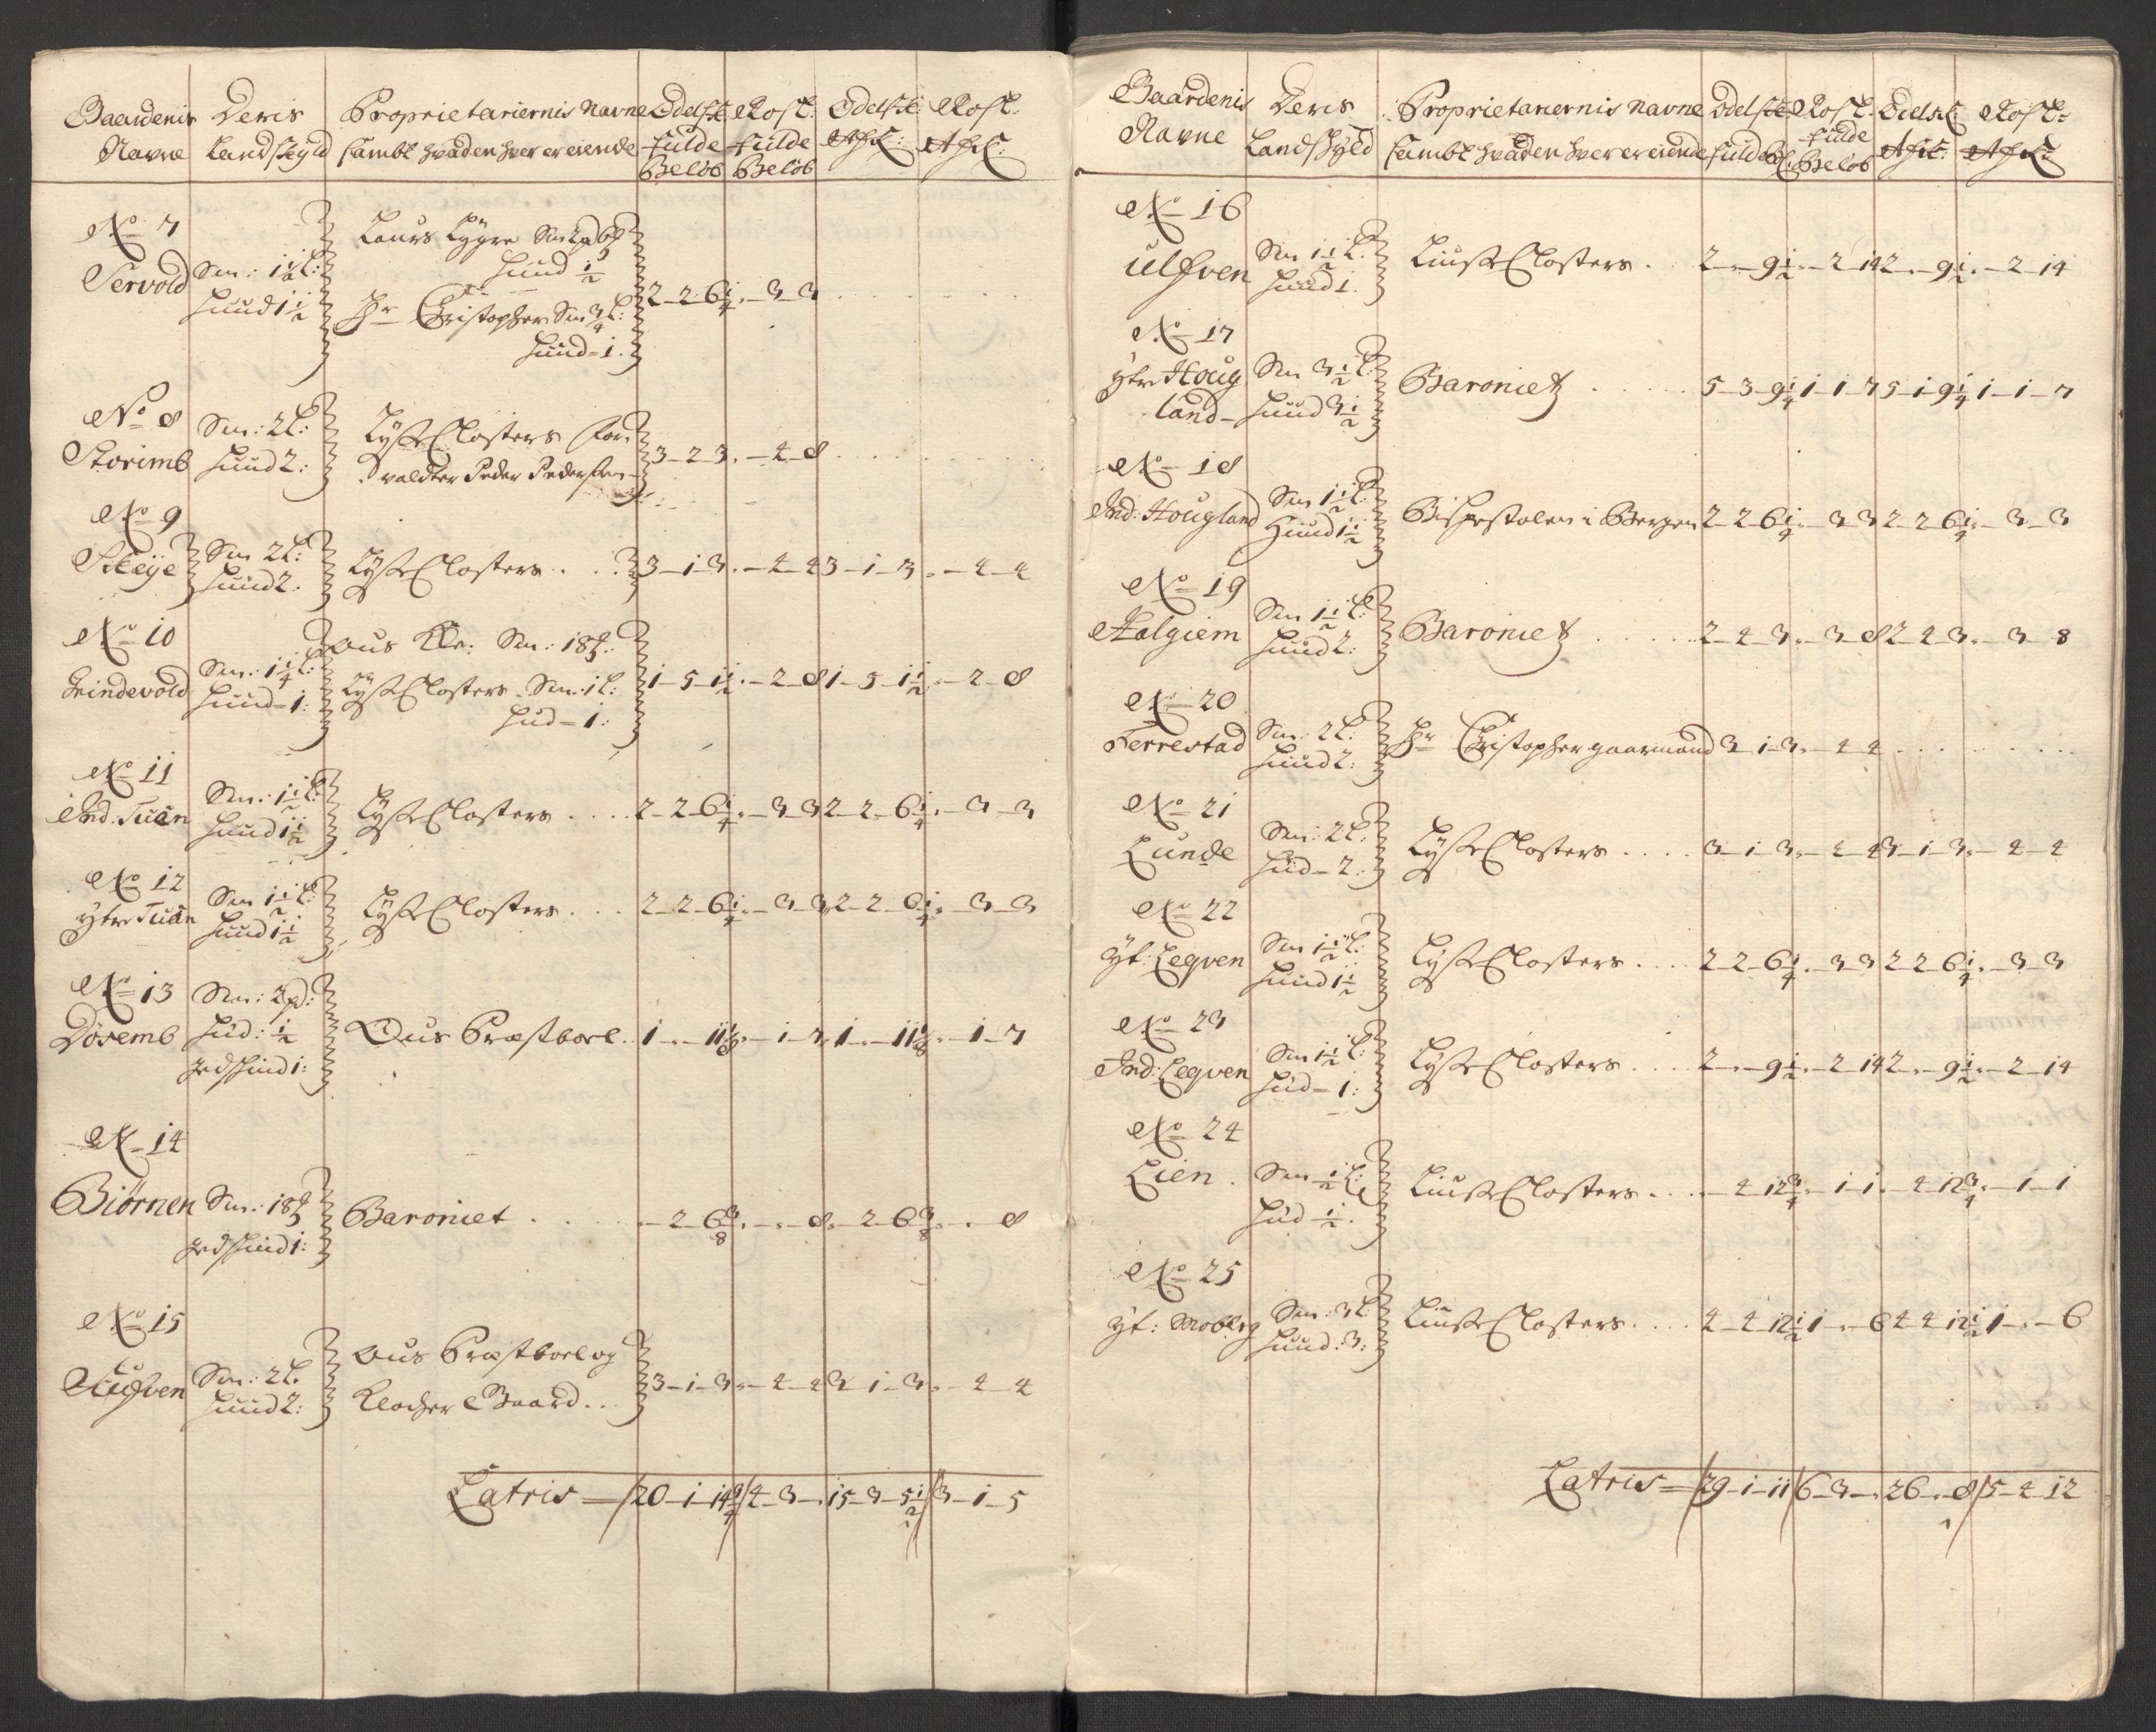 Gaardenis Navne | Deris Landskyld | Proprietariernis Navne sambt hvad en hver er eiende | Odelsk: fulde Beløb | Rost: fulde Beløb | Odelsk: Afk: | Rost: Afk:
No 7
Tervold | Sm: 1½ L: Huud 1½ | Laurs Lygre Huud ½
Hr Christopher Sm ¾ L: Huud = 1. | 2-2-6¼ | -3-3
No 8
Storimb | Sm: 2 L: Huud 2: | Lyse Closters For-
valdter Peder Pedersen | 3-2-3 | -4-8
No 9
Skeije | Sm 2 L: Huud 2: | Lyse Closters | 3-1-3 | -4-4 | 3-1-3 | -4-4
No 10
Grindevold | Sm: 1¼ L: Huud = 1: | Ous Kle: Sm: 18
Lyse Closters Sm: 1 L:
Hud = 1: | 1-5-1½ | -2-8 | 1-5-1½ | -2-8
No 11
Ind: Tuen | Sm: 1½ L: Huud 1½ | Lyse Closters | 2-2-6¼ | -3-3 | 2-2-6¼ | -3-3
No 12
Ytre Tuen | Sm 1½ L: Huud 1½ | Lyse Closters | 2-2-6¼ | -3-3 | 2-2-6¼ | -3-3
No 13
Døsemb | Sm: 2 p: Hud: ½ gedskind 1: | Ous Præstborl | 1-"-11⅛ | -1-7 | 1-"-11⅛ | -1-7
No 14
Biørnen | Sm: 18 gedskind 1: | Baroniet | -2-6⅜ | -"-8 | -2-6⅜ | -"-8
No 15
Sm: 2 L. Huud 2: | Ous Præstborl og
Klocher Gaard | 3-1-3 | -4-4 | 3-1-3 | -4-4
Latris = 20-1-14¾ | 4-3- | 15-3-5½ | 3-1-5
Gaardenis Navne | Deris Landskyld | Proprietariernis Navne sambt hvad en hver er eiende | Odelsk: fulde Bel: | Rost: fulde Beløb | Odelsk: Afk: | Rost: Afk:
No 16
Ulfven | Sm 1½ L: Huud 1. | Liuse Closters | 2-"-9½ | -2-14 | 2-"-9½ | -2-14
No 17
Ytre Houg
land | Sm 3½ L: Huud 3½ | Baroniet | 5-3-9¼ | 1-1-7 | 5-1-9¼ | 1-1-7
No 18
Ind: Hougland | Sm 1½ L: Huud 1½ | Bispestolen i Bergen | 2-2-6¼ | -3-3 | 2-2-6¼ | -3-3
No 19
Halgiem | Sm 1½ L: Huud 2: | Baroniet | 2-4-3 | -3-8 | 2-4-3 | -3-8
No 20
Ferrestad | Sm: 2 L: Huud 2: | Hr Christopher gaarmand | 3-1-3 | -4-4
No 21
Lunde | Sm: 2 L: Hud = 2: | Lyse Closters | 3-1-3 | -4-4 | 3-1-3 | -4-4
No 22
Yt: Legven | Sm 1½ L: Huud 1½ | Lyse Closters | 2-2-6¼ | -3-3 | 2-2-6¼ | -3-3
No 23
Ind: Legven | Sm 1½ L: Hud = 1: | Lyse Closters | 2-"-9½ | -2-14 | 2-"-9½ | -2-14
No 24
Lien | Sm ½ L: Hud ½ | Liuse Closters | -4-12¾ | -1-1 | -4-12¾ | -1-1
No 25
Yt: Moberg | Sm: 3 L: Huud: 3: | Liuse Closters | 4-4-12½ | 1-"-6 | 4-4-12½ | 1-"-6
Latris = 29-1-11 | 6-3- | 26-"-8 | 5-4-12